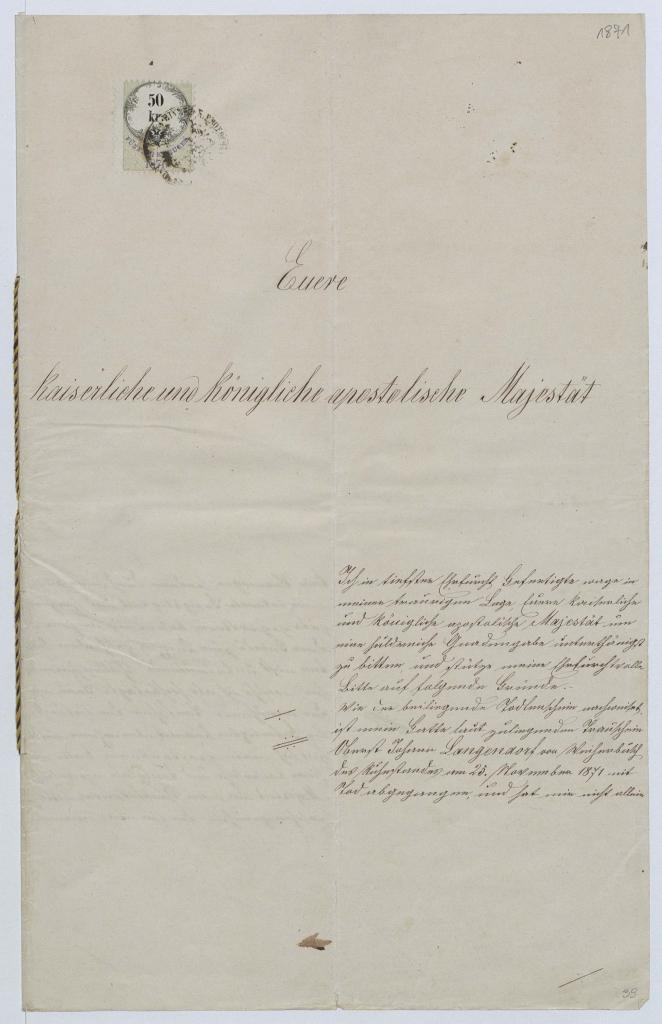 1871
50
kr.
Euere
kaiserliche und königliche apostolische Majestät
Ich in tiefster Ehrfurcht Gefertigte wage in
meiner traurigen Lage Euere kaiserliche
und königliche apostolische Majestät um
eine huldreiche Gnadengabe unterthänigst
zu bitten und stütze meine Ehrfurchtsvolle
Bitte auf folgende Gründe.
Wie der beiliegende Todtenschein nachweiset,
ist mein Gatte laut zuliegenden Trauschein
Oberst Johann Langendorf von
des Ruhestandes am 25. November 1871 mit
Tod abgegangen, und hat mir nicht allein